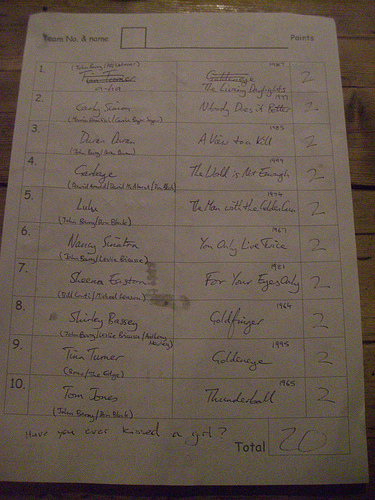 Team No. & name Points
1. (John Barry/Pal Waaktaar) 1987
Tina Turner Goldeneye 2
a-ha The Living Daylights
2. 1977
Carly Simon Nobody Does it Better 2
(Marvin Hamlisch/Carole Bayer Sager)
3. 1985
Duran Duran A View to a Kill 2
(John Barry/Duran Duran)
4. 1999
Garbage The World is Not Enough 2
(David Arnold/David McAlmont/Don Black)
5. 1974
Lulu The Man with the Golden Gun 2
(John Barry/Don Black)
6. 1967
Nancy Sinatra You Only Live Twice 2
(John Barry/Leslie Bricusse)
7. 1981
Sheena Easton For Your Eyes Only 2
(Bill Conti/Michael Leeson)
8. 1964
Shirley Bassey Goldfinger 2
(John Barry/Leslie Bricusse/Anthony Newley)
9. 1995
Tina Turner Goldeneye 2
(Bono/The Edge)
10. 1965
Tom Jones Thunderball 2
(John Barry/Don Black)
Have you ever kissed a girl?
Total 20